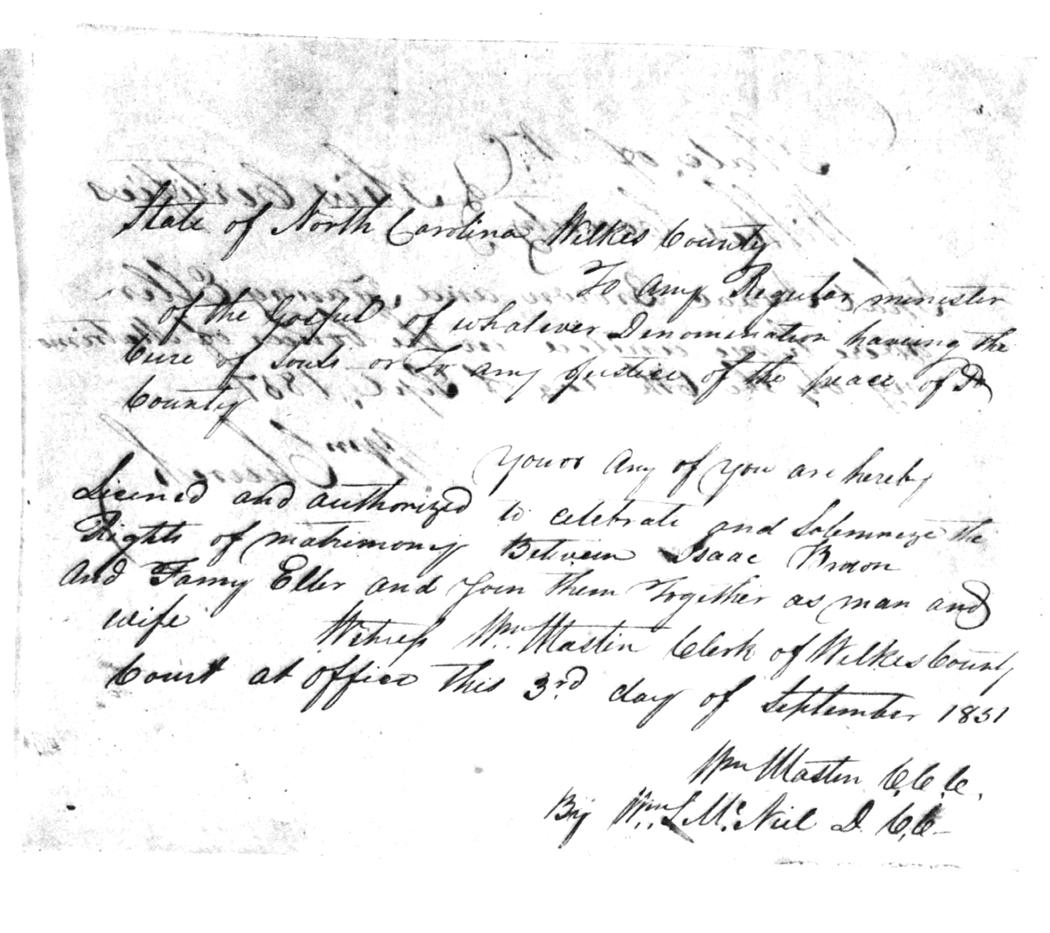 State of North Carolina Wilkes County
To Any Regular minister
of the Gospel of whatever Denomination having the
Cure of Souls or To any Justice of the peace of Sd
County
You or Any of You are hereby
Licened and authorized to celebrate and Solemnize the
Rights of matrimony Between Isaac Brown
And Fanny Eller and Join them Together as man and
wife
Witness Wm. Mastin Clerk of Wilkes County
Court at office this 3rd day of September 1851
Wm Mastin C.C.C.
By Wm. L Mc. Niel D C.C.